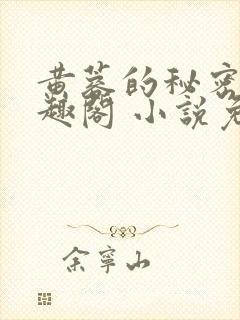 黄蓉的秘密
趣阁 小说免
余宁山